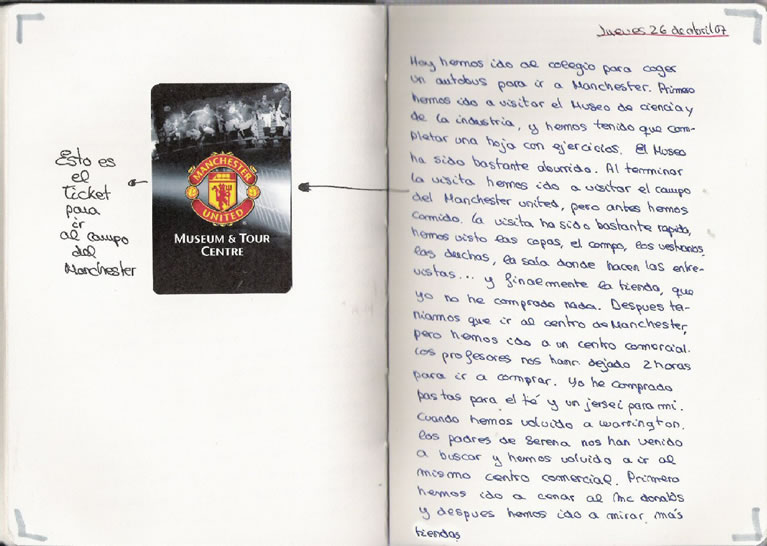 Esto es
el
Ticket
para
ir
al campo
del
Manchester
MANCHESTER
UNITED
MUSEUM & TOUR
CENTRE
Jueves 26 de abril 07
Hoy hemos ido al colegio para coger
un autobus para ir a Manchester. Primero
hemos ido a visitar el Museo de ciencia y
de la industria, y hemos tenido que com-
pletar una hoja con ejercicios. El Museo
ha sido bastante aburrido. Al terminar
la visita hemos ido a visitar el campo
del Manchester united, pero antes hemos
comido. La visita ha sido bastante rapida,
hemos visto las copas, el campo, los vestuarios,
las duchas, la sala donde hacen las entre-
vistas... y finalmente la tienda, que
yo no he comprado nada. Despues te-
niamos que ir al centro de Manchester,
pero hemos ido a un centro comercial.
Los profesores nos han dejado 2 horas
para ir a comprar. Yo he comprado
pastas para el té y un jersei para mi.
Cuando hemos volvido a warrington.
Los padres de Serena nos han venido
a buscar y hemos volvido a ir al
mismo centro comercial. Primero
hemos ido a cenar al Mc donalds
y despues hemos ido a mirar más
tiendas